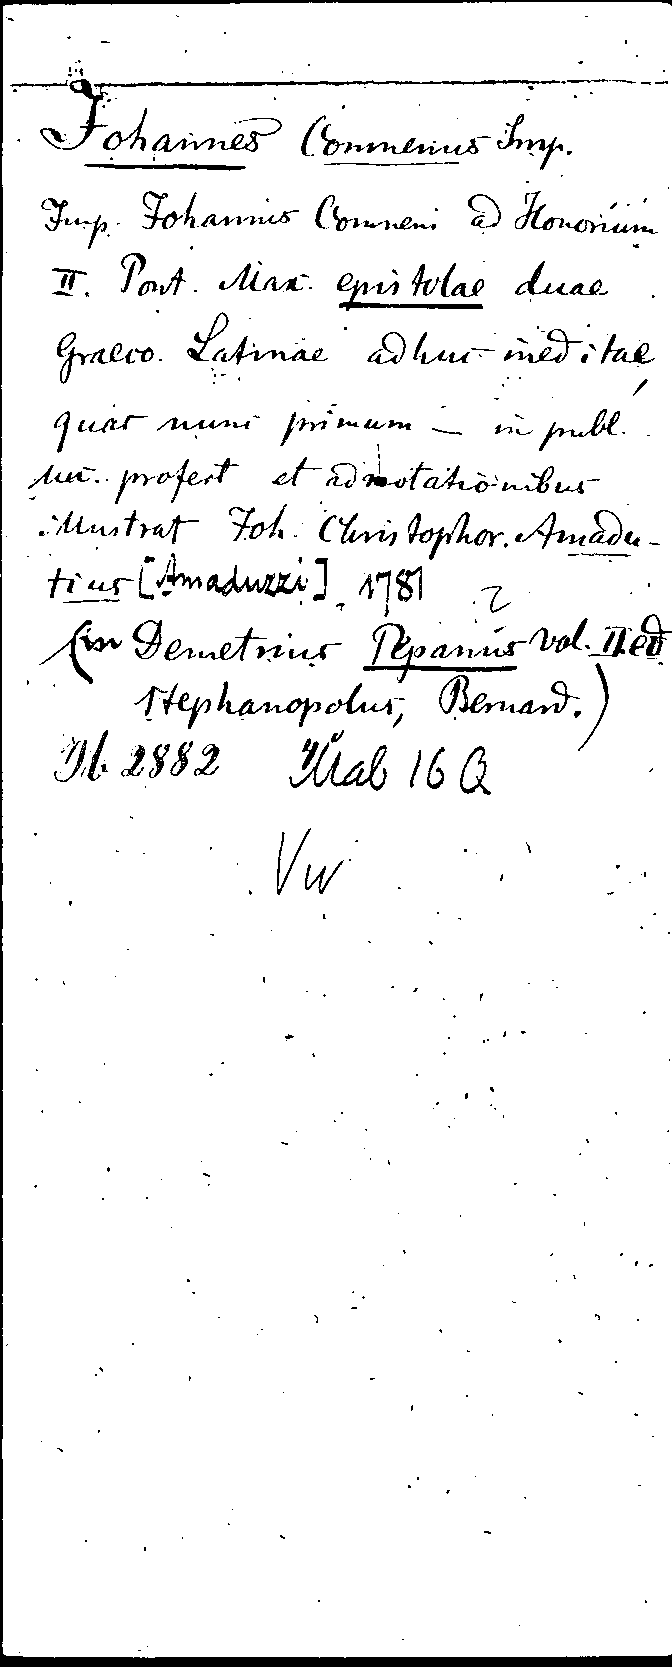 Johannes Comnenus Imp.
Imp. Johannis Comneni ad Honorium
II. Pont. Max. epistolae duae
Graeco. Latinae adhuc ineditae,
quas nunc primum — in publ.
luc. profert et adnotationibus
illustrat Joh. Christophor. Amadu-
tius [Amaduzzi] 1781
(in Demetrius Pepanus vol. II. ed
Stephanopolus, Bernard.)
Yb 2882 16 Q